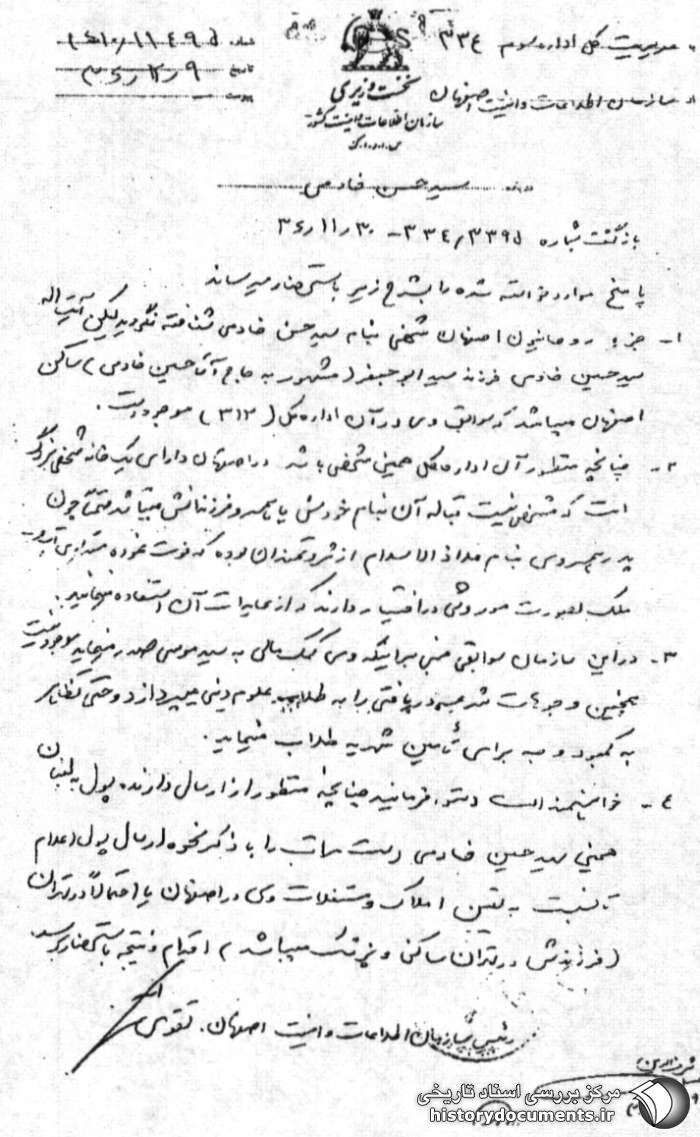 به مدیریت کل اداره سوم ۳۳۴
از سازمان اطلاعات و امنیت اصفهان
شماره
تاریخ
پیوست
نخست وزیری
سازمان اطلاعات و امنیت کشور
س.ا.و.ا.ک
درباره سید حسن خادمی
بازگشت بشماره ۳۳۴/۳۳۹۵ - ۳۰/۱۱/۳۶
پاسخ موارد خواسته شده را بشرح زیر باستحضار میرساند
۱- جزء روحانیون اصفهان شخصی بنام سید حسن خادمی شناخته نگردید لیکن آیت اله
سید حسین خادمی فرزند سید ابو جعفر (مشهور به حاج آقا حسین خادمی) ساکن
اصفهان میباشد که سوابق وی در آن اداره کل (۳۱۲) موجود است.
۲- چنانچه منظور آن اداره کل همین شخص باشد در اصفهان دارای یک خانه شخصی بزرگ
است که مشخص نیست قباله آن بنام خودش یا همسر و فرزندانش میباشد ضمناً چون
پدر همسر وی بنام ملاذ الاسلام از ثروتمندان بوده که فوت نموده
ملک بصورت موروثی در اختیار دارند که از عایدات آن استفاده مینمایند.
۳- در این سازمان سوابقی مبنی بر اینکه وی کمک مالی به سید موسی صدر مینماید موجود نیست
همچنین وجوهات شرعیه دریافتی را به طلاب علوم دینی میپردازد و حتی
به کمبود وجه برای تأمین شهریه طلاب مینماید.
۴- خواهشمند است دستور فرمائید چنانچه منظور از ارسال دارنده پول به لبنان
همین سید حسین خادمی است مراتب را با ذکر نحوه ارسال پول اعلام
تا نسبت به تعیین املاک و مستغلات وی در اصفهان یا احتمالاً در تهران
(فرزندش در تهران ساکن و پزشک میباشد) اقدام و نتیجه باستحضار برسد.
رئیس سازمان اطلاعات و امنیت اصفهان. تقوی
مرکز بررسی اسناد تاریخی
historydocuments.ir